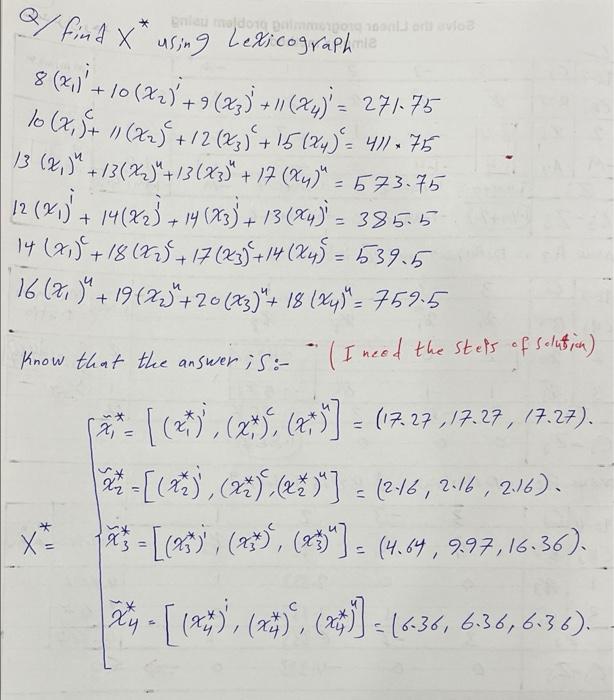 Q/ find X* using Lexicograph
8(x₁)ⁱ + 10(x₂)ⁱ + 9(x₃)ⁱ + 11(x₄)ⁱ = 271.75
10(x₁)ᶜ + 11(x₂)ᶜ + 12(x₃)ᶜ + 15(x₄)ᶜ = 411.75
13(x₁)ᵘ + 13(x₂)ᵘ + 13(x₃)ᵘ + 17(x₄)ᵘ = 573.75
12(x₁)ⁱ + 14(x₂)ⁱ + 14(x₃)ⁱ + 13(x₄)ⁱ = 385.5
14(x₁)ᶜ + 18(x₂)ᶜ + 17(x₃)ᶜ + 14(x₄)ᶜ = 539.5
16(x₁)ᵘ + 19(x₂)ᵘ + 20(x₃)ᵘ + 18(x₄)ᵘ = 759.5
Know that the answer is:- (I need the steps of solution)
x̃₁* = [(x₁*)ⁱ, (x₁*)ᶜ, (x₁*)ᵘ] = (17.27, 17.27, 17.27).
x̃₂* = [(x₂*)ⁱ, (x₂*)ᶜ, (x₂*)ᵘ] = (2.16, 2.16, 2.16).
X* = x̃₃* = [(x₃*)ⁱ, (x₃*)ᶜ, (x₃*)ᵘ] = (4.64, 9.97, 16.36).
x̃₄* = [(x₄*)ⁱ, (x₄*)ᶜ, (x₄*)ᵘ] = (6.36, 6.36, 6.36).